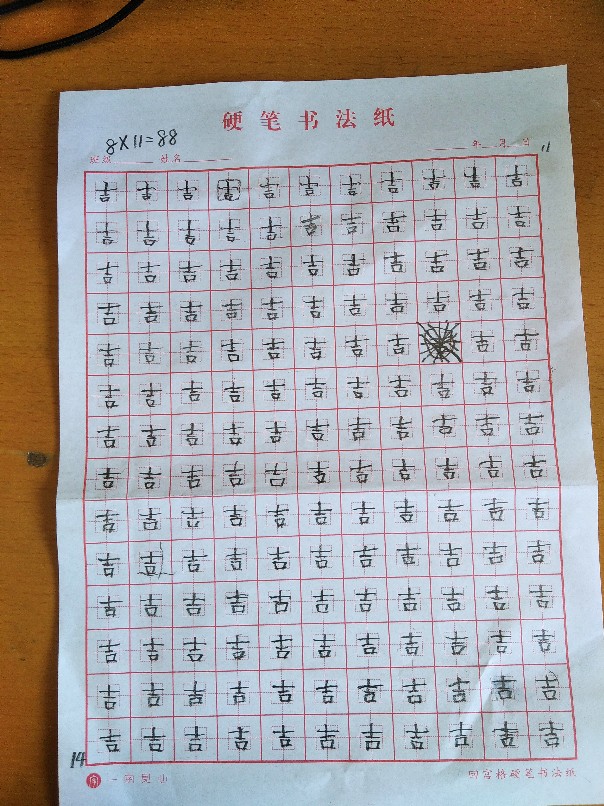 硬笔书法纸
8X11=88
班级 姓名 年 月 日 11
吉 吉 吉 吉 吉 吉 吉 吉 吉 吉 吉
吉 吉 吉 吉 吉 吉 吉 吉 吉 吉 吉
吉 吉 吉 吉 吉 吉 吉 吉 吉 吉 吉
吉 吉 吉 吉 吉 吉 吉 吉 吉 吉 吉
吉 吉 吉 吉 吉 吉 吉 吉 吉 吉
吉 吉 吉 吉 吉 吉 吉 吉 吉 吉 吉
吉 吉 吉 吉 吉 吉 吉 吉 吉 吉 吉
吉 吉 吉 吉 吉 吉 吉 吉 吉 吉 吉
吉 吉 吉 吉 吉 吉 吉 吉 吉 吉 吉
吉 吉 吉 吉 吉 吉 吉 吉 吉 吉 吉
吉 吉 吉 吉 吉 吉 吉 吉 吉 吉 吉
吉 吉 吉 吉 吉 吉 吉 吉 吉 吉 吉
吉 吉 吉 吉 吉 吉 吉 吉 吉 吉 吉
14 吉 吉 吉 吉 吉 吉 吉 吉 吉 吉 吉
回宫格硬笔书法纸